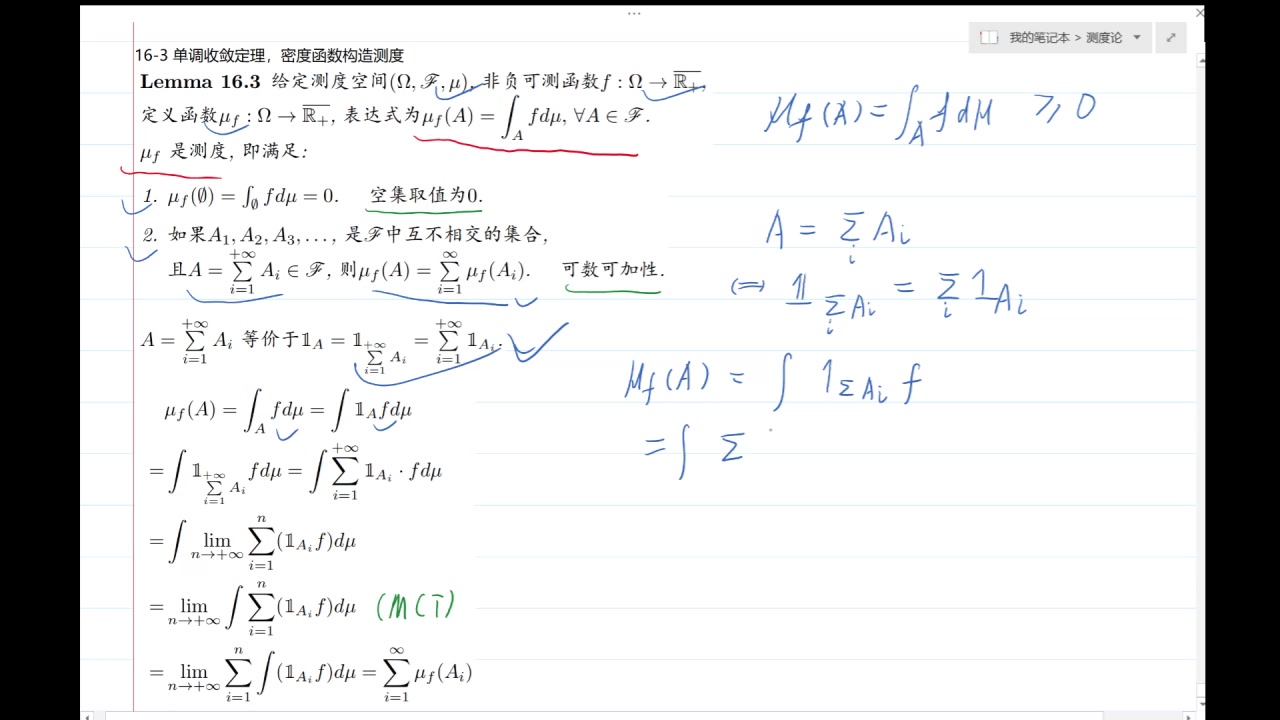 我的笔记本 > 测度论
16-3 单调收敛定理，密度函数构造测度
Lemma 16.3 给定测度空间(Ω, ℱ, μ), 非负可测函数f : Ω → \overline{ℝ_+},
定义函数μ_f : Ω → \overline{ℝ_+}, 表达式为μ_f(A) = ∫_A fdμ, ∀A ∈ ℱ.
μ_f 是测度, 即满足:
1. μ_f(∅) = ∫_∅ fdμ = 0. 空集取值为0.
2. 如果A_1, A_2, A_3, ..., 是ℱ中互不相交的集合,
且A = \sum_{i=1}^{+∞} A_i ∈ ℱ, 则μ_f(A) = \sum_{i=1}^{∞} μ_f(A_i). 可数可加性.
A = \sum_{i=1}^{+∞} A_i 等价于𝟙_A = 𝟙_{\sum_{i=1}^{+∞} A_i} = \sum_{i=1}^{+∞} 𝟙_{A_i}.
μ_f(A) = ∫_A fdμ = ∫ 𝟙_A fdμ
= ∫ 𝟙_{\sum_{i=1}^{+∞} A_i} fdμ = ∫ \sum_{i=1}^{+∞} 𝟙_{A_i} · fdμ
= ∫ \lim_{n→+∞} \sum_{i=1}^{n} (𝟙_{A_i} f)dμ
= \lim_{n→+∞} ∫ \sum_{i=1}^{n} (𝟙_{A_i} f)dμ (MCT)
= \lim_{n→+∞} \sum_{i=1}^{n} ∫ (𝟙_{A_i} f)dμ = \sum_{i=1}^{∞} μ_f(A_i)
μ_f(A) = ∫_A f dμ ≥ 0
A = \sum_i A_i
⇔ 𝟙_{\sum_i A_i} = \sum_i 1_{A_i}
μ_f(A) = ∫ 1_{ΣA_i} f
= ∫ Σ